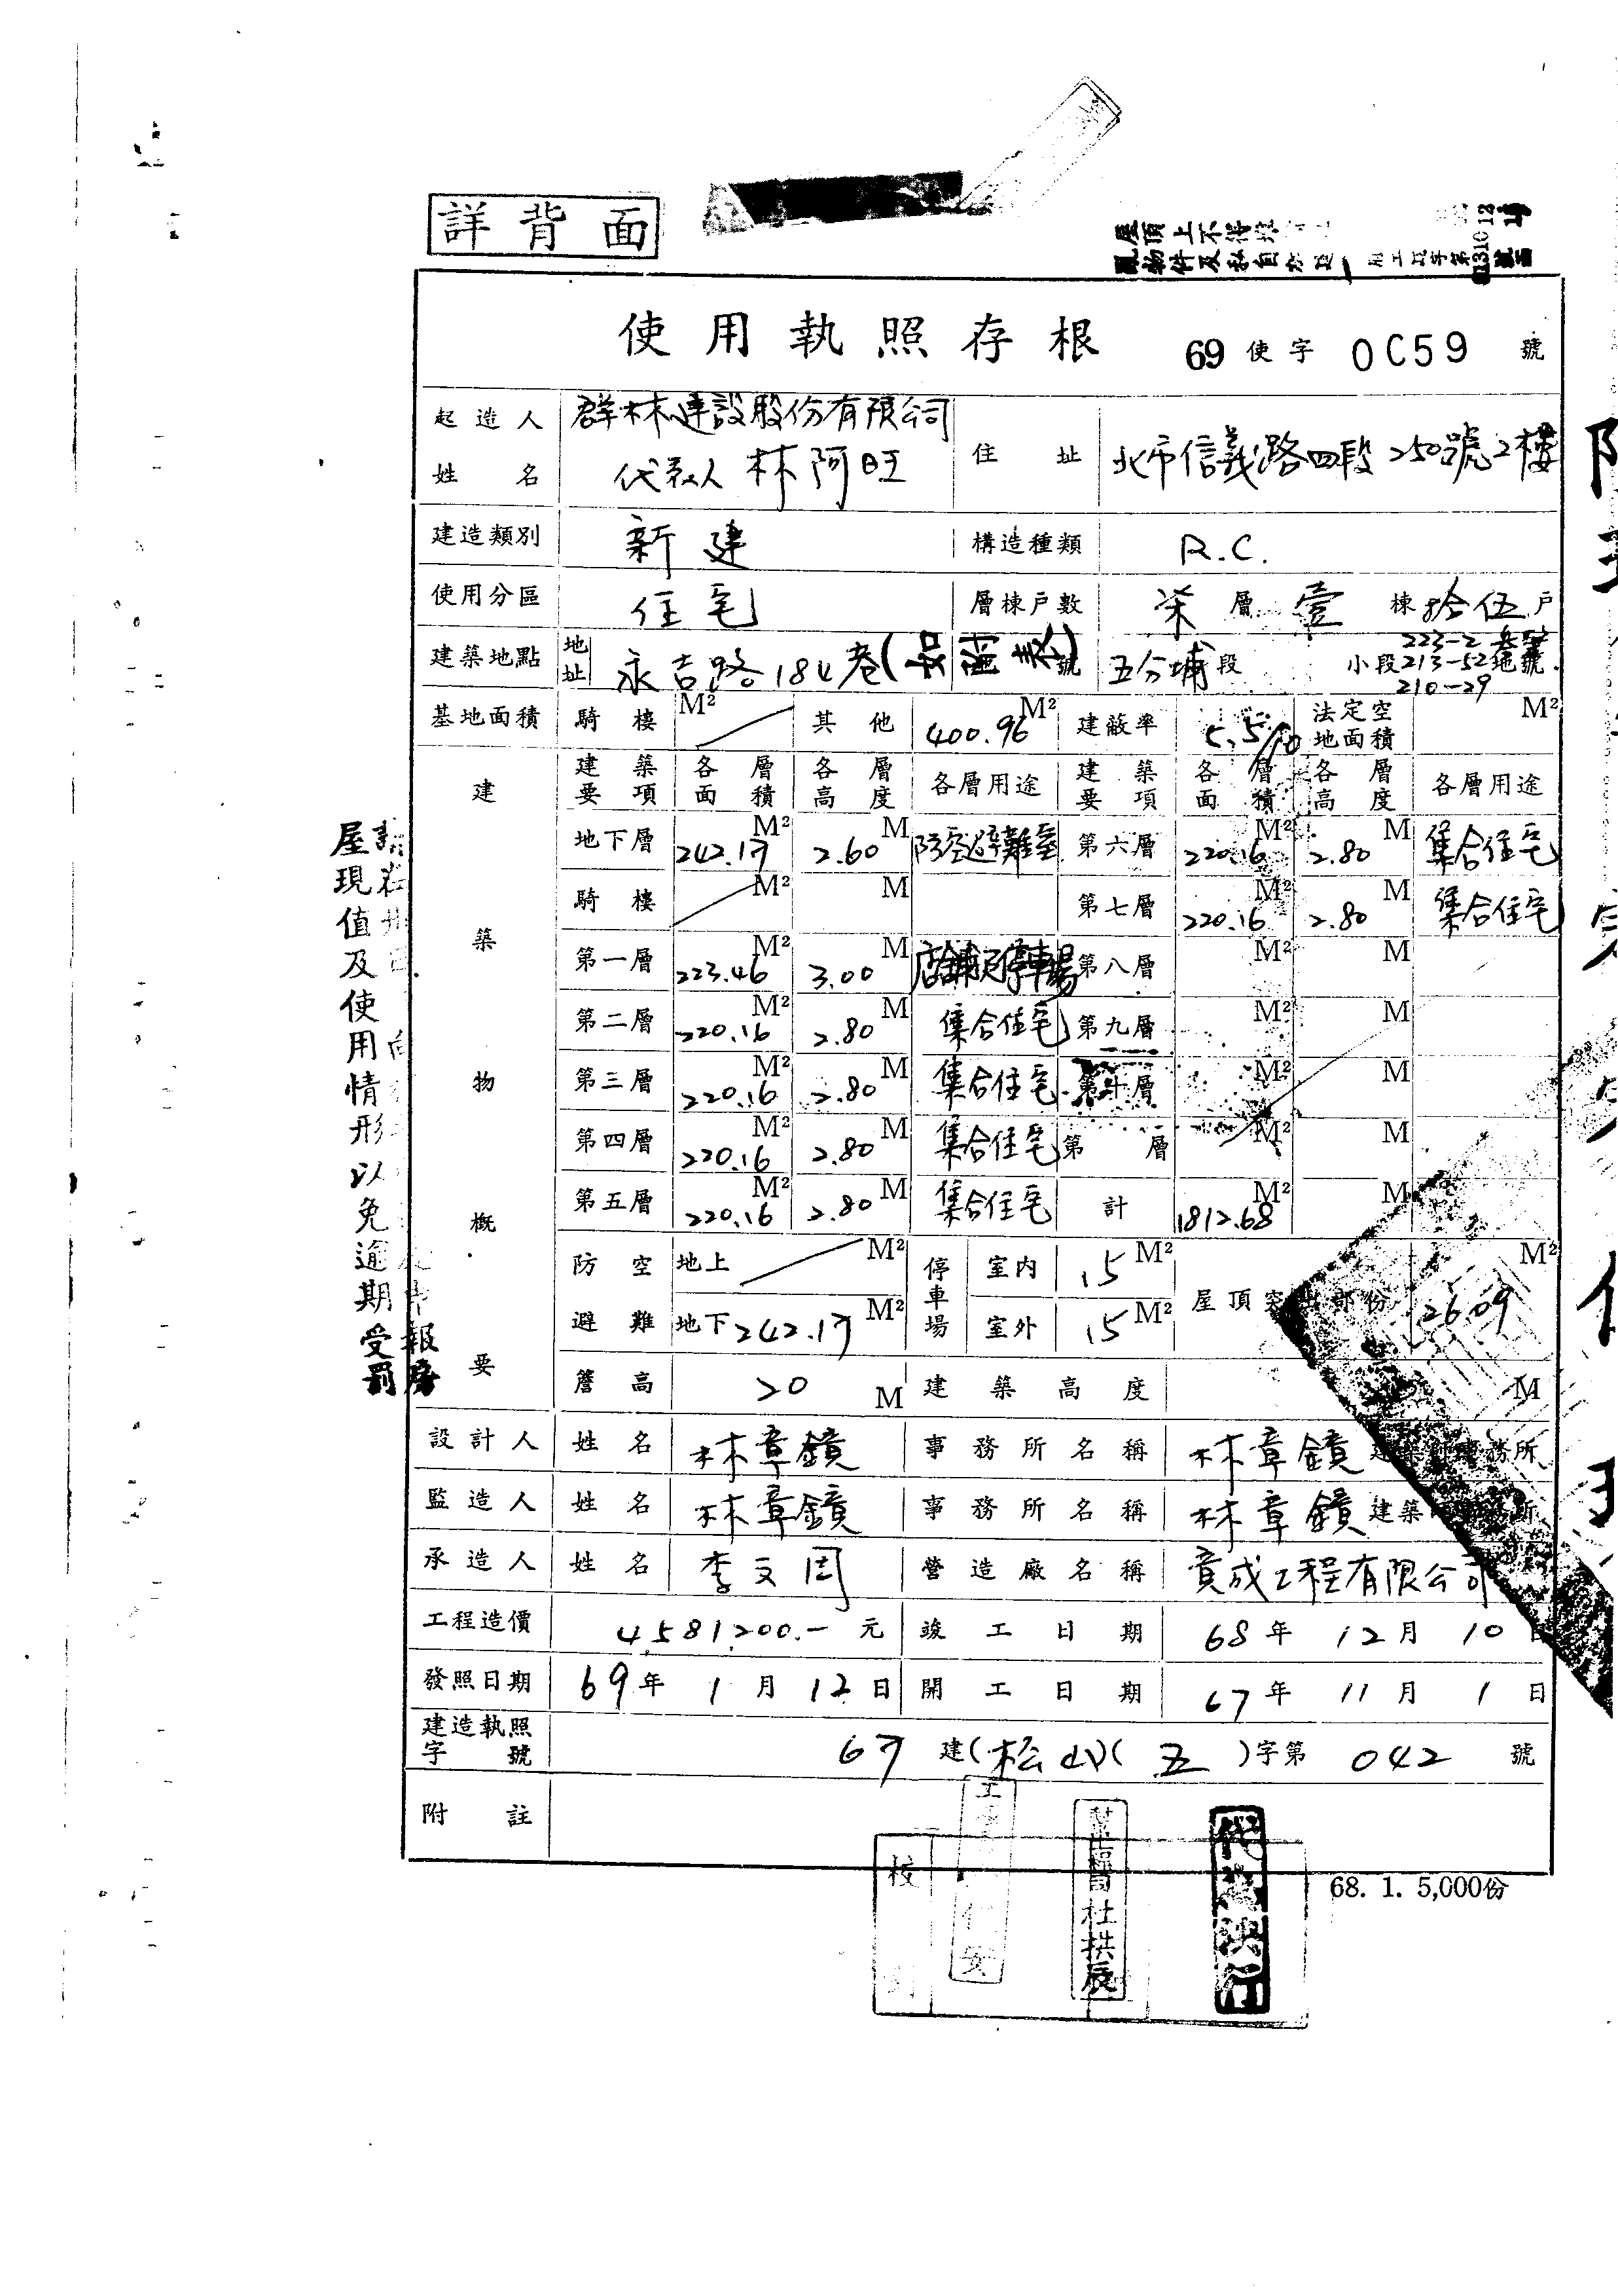 詳背面
屋頂上不得堆
亂物件及私自加建
使用執照存根 69使字 0C59 號
起造人姓名 群林建設股份有限公司 代表人 林阿旺 住址 北市信義路四段250號2樓
建造類別 新建 構造種類 R.C.
使用分區 住宅 層棟戶數 柒層壹棟拾伍戶
建築地點 地址 永吉路184巷(如附表)號 五分埔段 小段 223-2 213-52 210-29 地號
基地面積 騎樓 M² 其他 400.96 M² 建蔽率 5.5/10 法定空地面積 M²
建築物概要
建築要項 各層面積 各層高度 各層用途 建築要項 各層面積 各層高度 各層用途
地下層 242.17 M² 2.60 M 防空避難室 第六層 220.16 M² 2.80 M 集合住宅
騎樓 M² M 第七層 220.16 M² 2.80 M 集合住宅
第一層 223.46 M² 3.00 M 店舖及停車場 第八層 M² M
第二層 220.16 M² 2.80 M 集合住宅 第九層 M² M
第三層 220.16 M² 2.80 M 集合住宅 第十層 M² M
第四層 220.16 M² 2.80 M 集合住宅 第 層 M² M
第五層 220.16 M² 2.80 M 集合住宅 計 1812.68 M² M
防空避難 地上 M² 停車場 室內 15 M² 屋頂突出部份 26.09 M²
地下 242.17 M² 室外 15 M²
簷高 20 M 建築高度 M
設計人 姓名 林章鏡 事務所名稱 林章鏡建築師事務所
監造人 姓名 林章鏡 事務所名稱 林章鏡建築師事務所
承造人 姓名 李文周 營造廠名稱 竟成工程有限公司
工程造價 4,581,200.- 元 竣工日期 68年12月10日
發照日期 69年1月12日 開工日期 67年11月1日
建造執照字號 67 建(松山)(五)字第 042 號
附註
屋現值及使用情形以免逾期受罰
代為決行
杜拱辰
68. 1. 5,000份